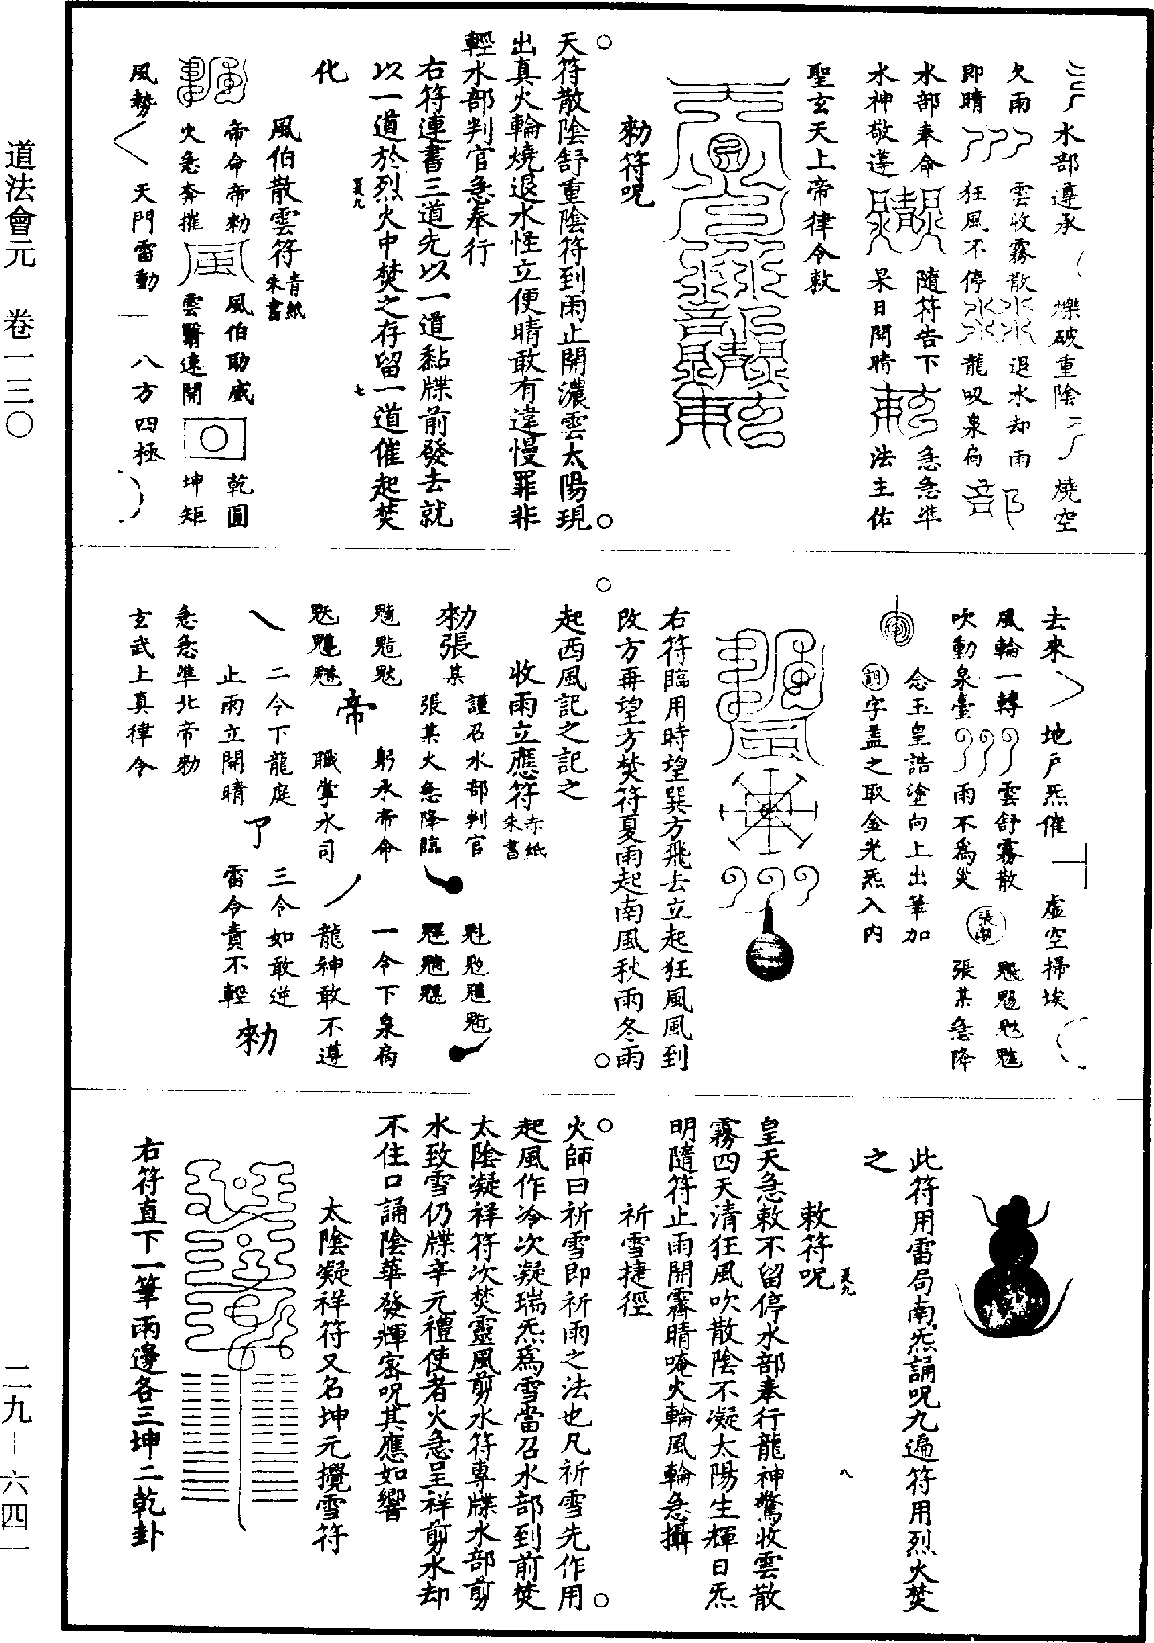 道法會元　卷一三〇
二九－六四一
水部遵承　爍破重陰　燒空
久雨　雲收霧散　退水却雨
即晴　狂風不停　龍吸泉扃
水部奉命　隨符告下　急急準
水神敬遵　杲日開晴　法主佑
聖玄天上帝律令敕
勑符咒
天符散陰舒重陰符到雨止開濃雲太陽現
出真火輪燒退水性立便晴敢有違慢罪非
輕水部判官急奉行
右符連書三道先以一道黏牒前發去就
以一道於烈火中焚之存留一道催起焚
化
風伯散雲符青紙朱書
帝命帝勑　風伯助威　乾圓
火急奔摧　雲翳速開　坤矩
風勢　天門雷動　八方四極
去來　地戶炁催　虛空掃埃
風輪一轉　雲舒霧散
吹動泉臺　雨不為災　張某急降
念玉皇誥塗向上出筆加
字蓋之取金光炁入內
右符臨用時望巽方飛去立起狂風風到
改方再望方焚符夏雨起南風秋雨冬雨
起西風記之記之
收雨立應符赤紙朱書
謹召水部判官
勑張某　張某火急降臨
躬承帝命　一令下泉扃
帝　職掌水司　龍神敢不遵
二令下龍庭　三令如敢逆
止雨立開晴　雷令責不輕
勑
急急準北帝勑
玄武上真律令
此符用雷局南炁誦咒九遍符用烈火焚
之
敕符咒
皇天急敕不留停水部奉行龍神驚收雲散
霧四天清狂風吹散陰不凝太陽生輝日炁
明隨符止雨開霽晴唵火輪風輪急攝
祈雪捷徑
火師曰祈雪即祈雨之法也凡祈雪先作用
起風作冷次凝瑞炁為雪當召水部到前焚
太陰凝祥符次焚靈風剪水符專牒水部剪
水致雪仍牒辛元禮使者火急呈祥剪水却
不住口誦陰華發輝密咒其應如響
太陰凝祥符又名坤元攪雪符
右符直下一筆兩邊各三坤二乾卦